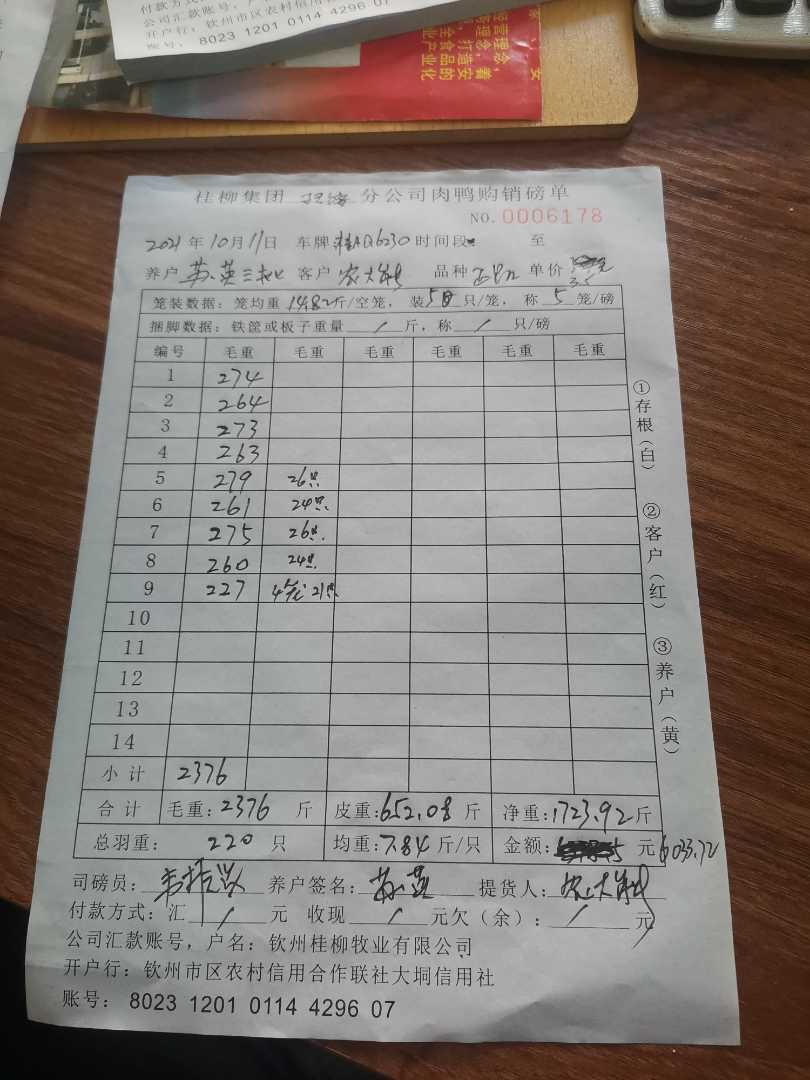 付款方式
公司汇款账号，户
开户行：钦州市区农村信用
账号：8023 1201 0114 4296 07
经营理念，着
打造安
全食品的
业产业化
桂柳集团 分公司肉鸭购销磅单
NO.0006178
2021年10月11日 车牌 桂 6230 时间段 至
养户 苏英 客户 农大 品种 单价 3.5
笼装数据：笼均重14.82斤/空笼，装5只/笼，称5笼/磅
捆脚数据：铁筐或板子重量/斤，称/只/磅
编号 毛重 毛重 毛重 毛重 毛重 毛重
1 274
2 264
3 273
4 263
5 279 26只
6 261 24只
7 275 26只
8 260 24只
9 227 4笼 21只
10
11
12
13
14
小计 2376
合计 毛重：2376 斤 皮重：652.08斤 净重：1723.92斤
总羽重：220只 均重：7.84斤/只 金额： 元 6033.72
司磅员： 养户签名：苏英 提货人：农大
付款方式：汇/元 收现/元欠（余）：/元
公司汇款账号，户名：钦州桂柳牧业有限公司
开户行：钦州市区农村信用合作联社大垌信用社
账号：8023 1201 0114 4296 07
①存根（白）
②客户（红）
③养户（黄）